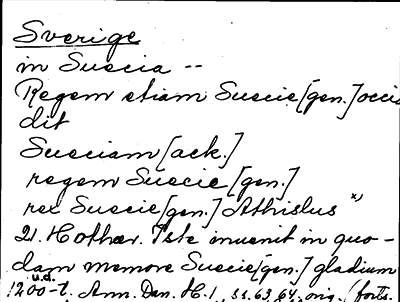 Sverige
in Suecia --
Regem etiam Suecie [gen.] occi
dit
Sueciam [ack.]
regem Suecie [gen.]
rex Suecie [gen.] Athislus x)
21. Hother. Iste inuenit in quo-
dam nemore Suecie [gen.] gladium
1200-t. u.å. Ann. Dan. M. 1, ss. 63, 64, orig. (forts.